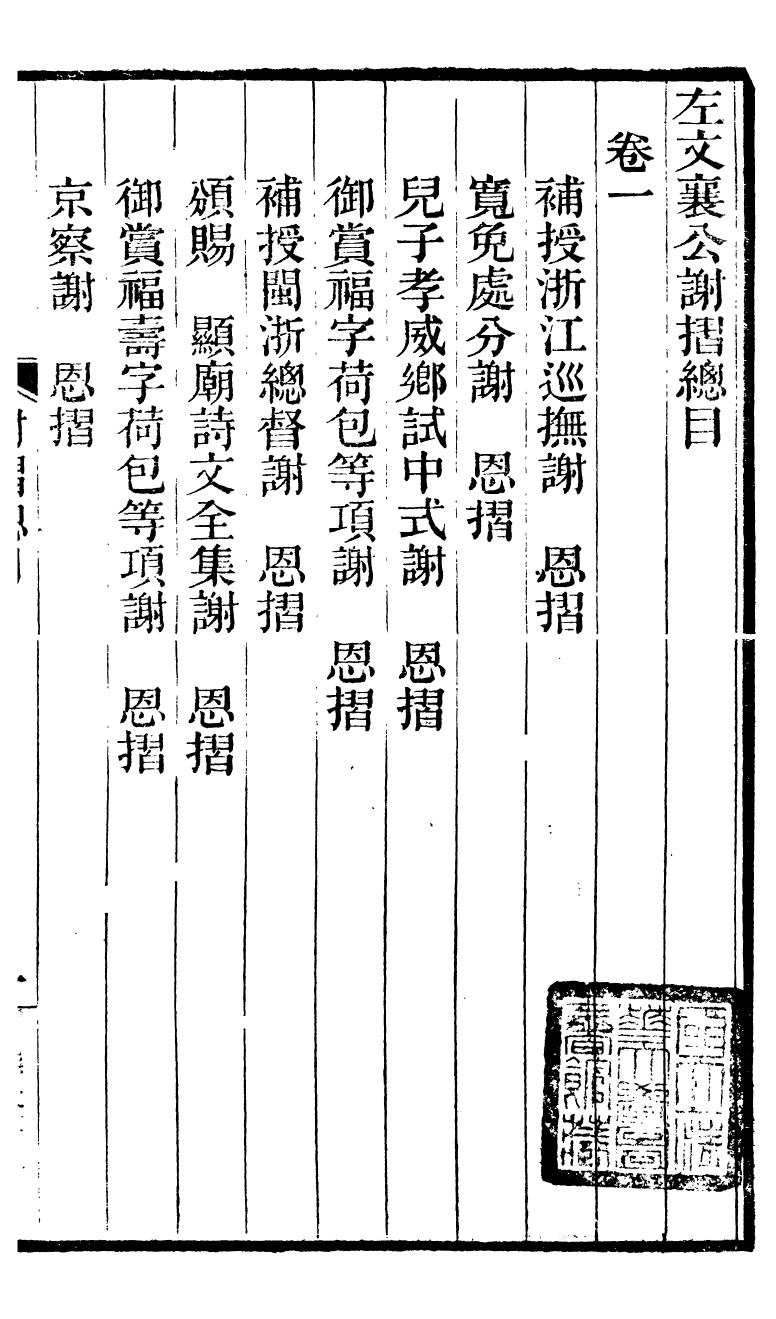 左文襄公謝摺總目
卷一
補授浙江巡撫謝　恩摺
寬免處分謝　恩摺
兒子孝威鄉試中式謝　恩摺
御賞福字荷包等項謝　恩摺
補授閩浙總督謝　恩摺
頒賜　顯廟詩文全集謝　恩摺
御賞福壽字荷包等項謝　恩摺
京察謝　恩摺